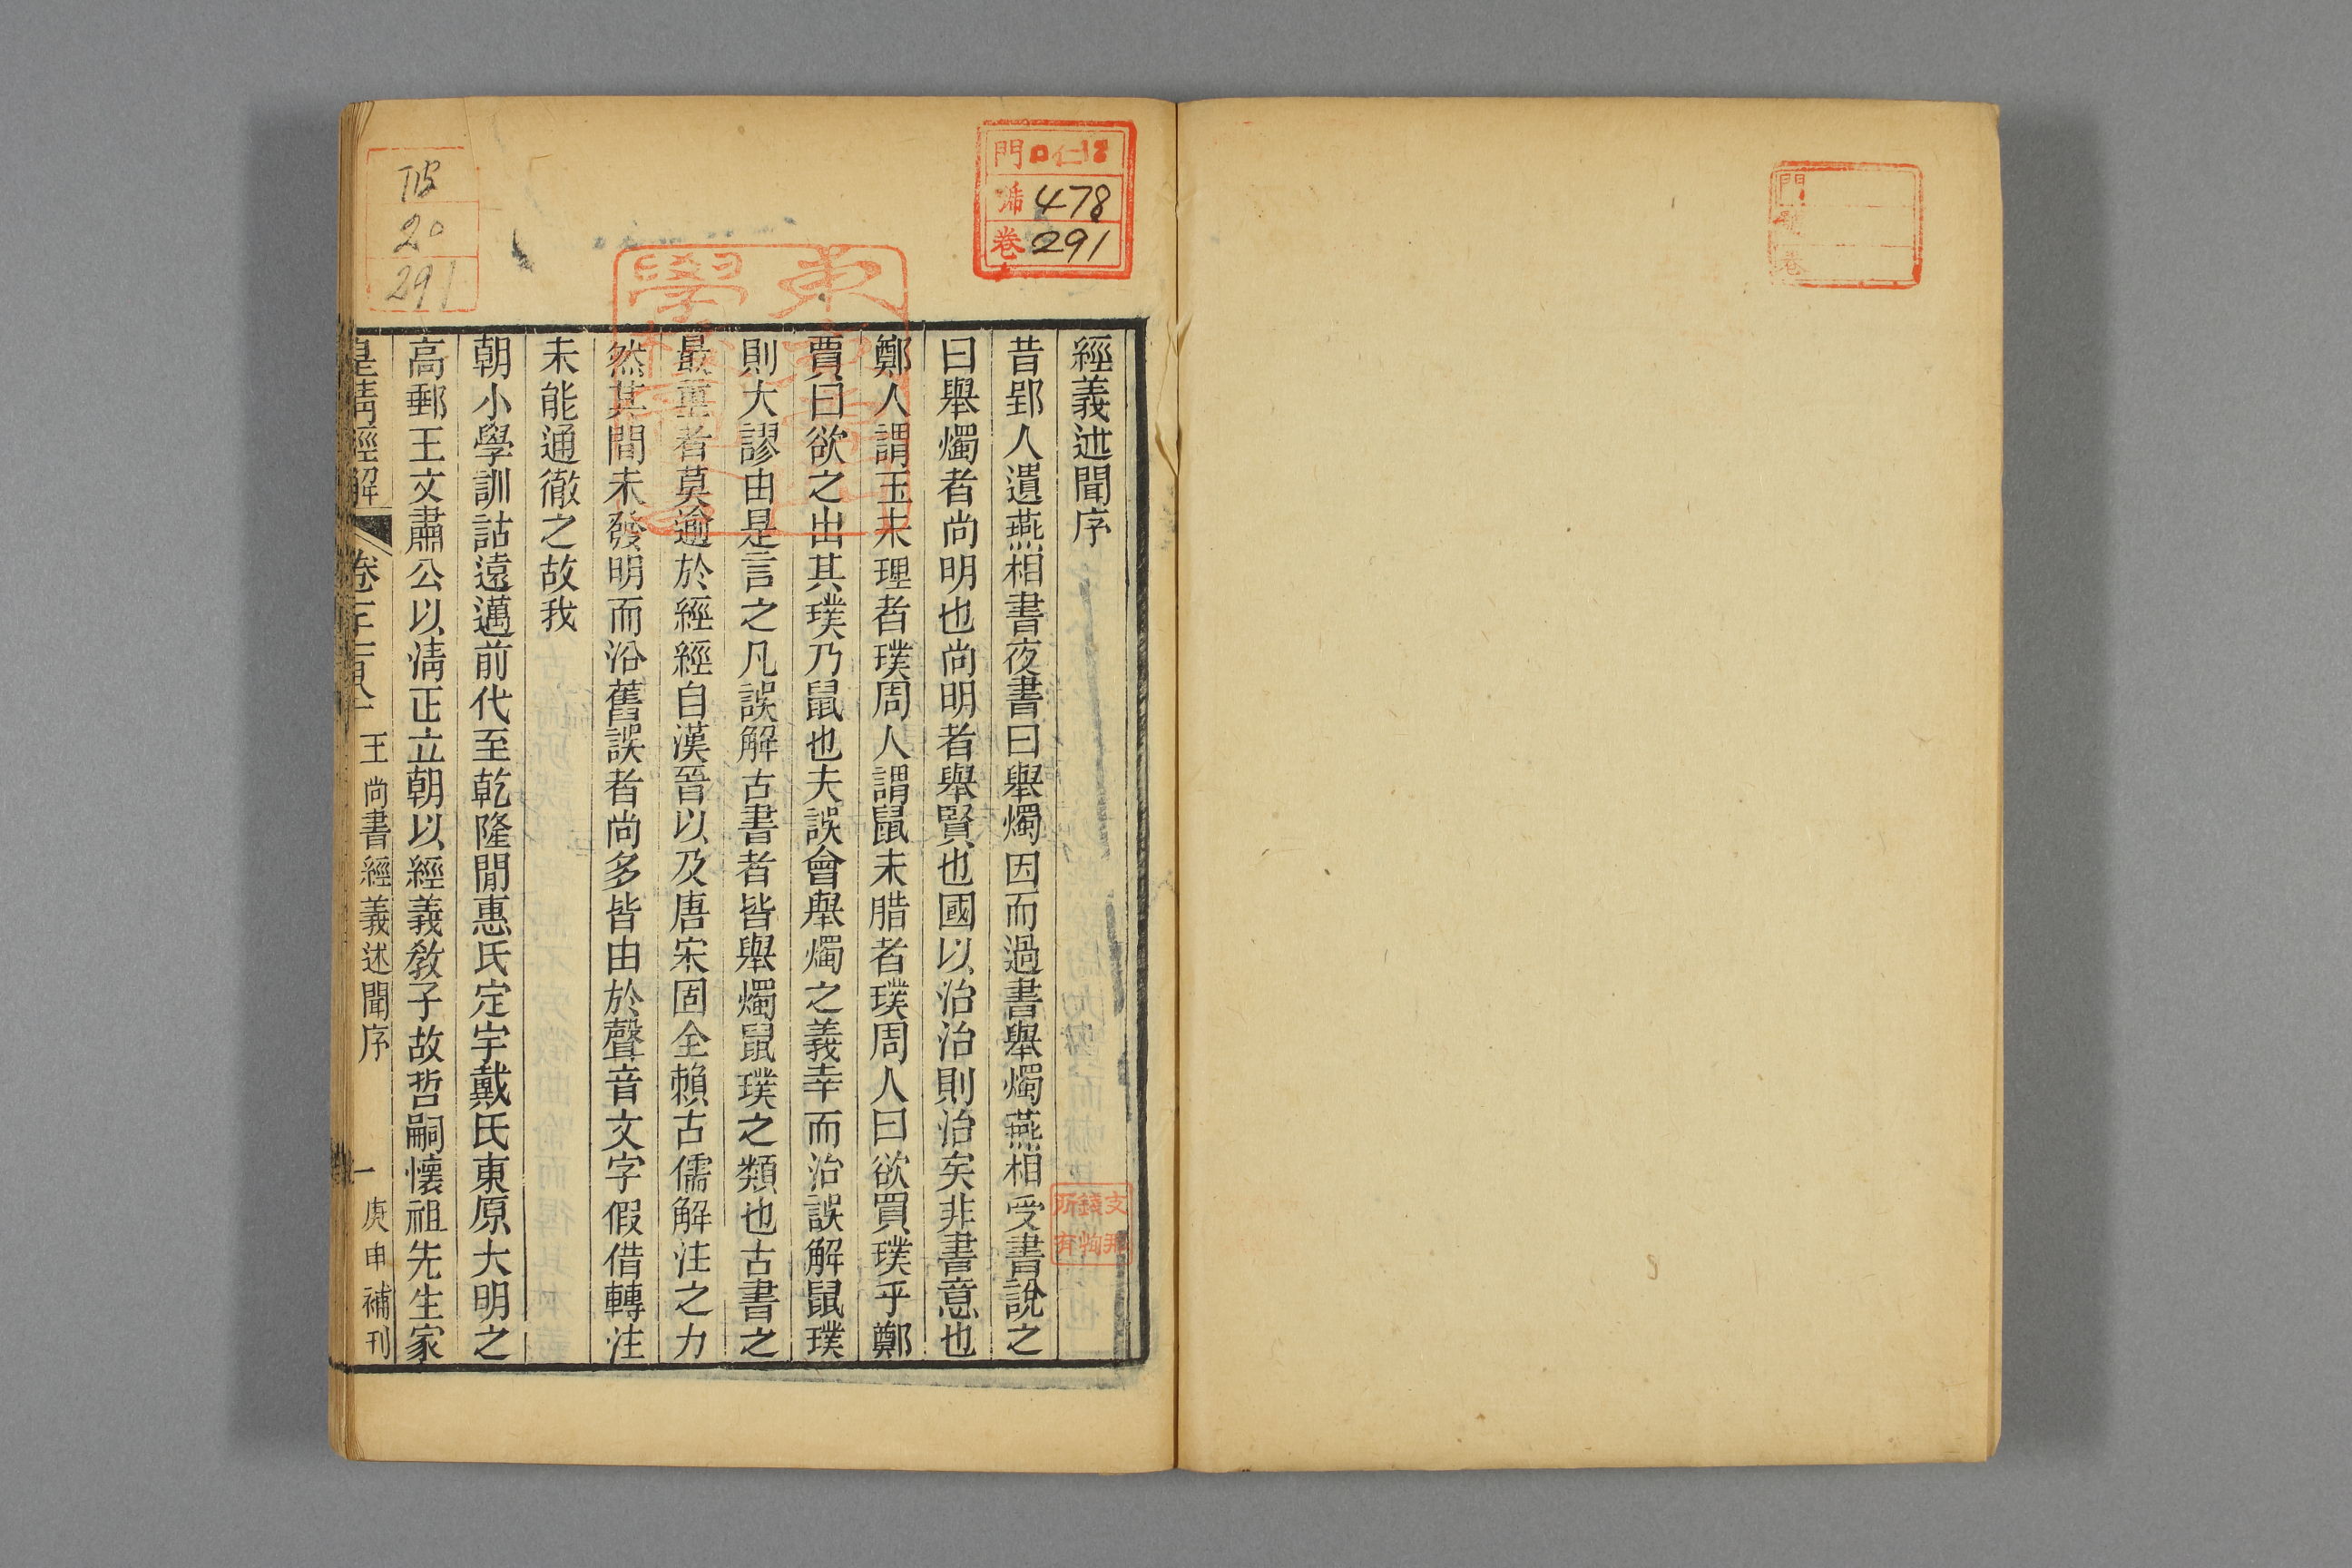 經義述聞序
昔郢人遺燕相書夜書曰舉燭因而過書舉燭燕相受書說之
曰舉燭者尚明也尚明者舉賢也國以治治則治矣非書意也
鄭人謂玉未理者璞周人謂鼠未腊者璞周人曰欲買璞乎鄭
賈曰欲之出其璞乃鼠也夫誤會舉燭之義幸而治誤解鼠璞
則大謬由是言之凡誤解古書者皆舉燭鼠璞之類也古書之
最重者莫逾於經經自漢晉以及唐宋固全賴古儒解注之力
然其閒未發明而沿舊誤者尚多皆由於聲音文字假借轉注
未能通徹之故我
朝小學訓詁遠邁前代至乾隆閒惠氏定宇戴氏東原大明之
高郵王文肅公以淸正立朝以經義敎子故哲嗣懷祖先生家
皇淸經解
王尚書經義述聞序
一
庚申補刊
門
478
卷
291
20
291
門
卷